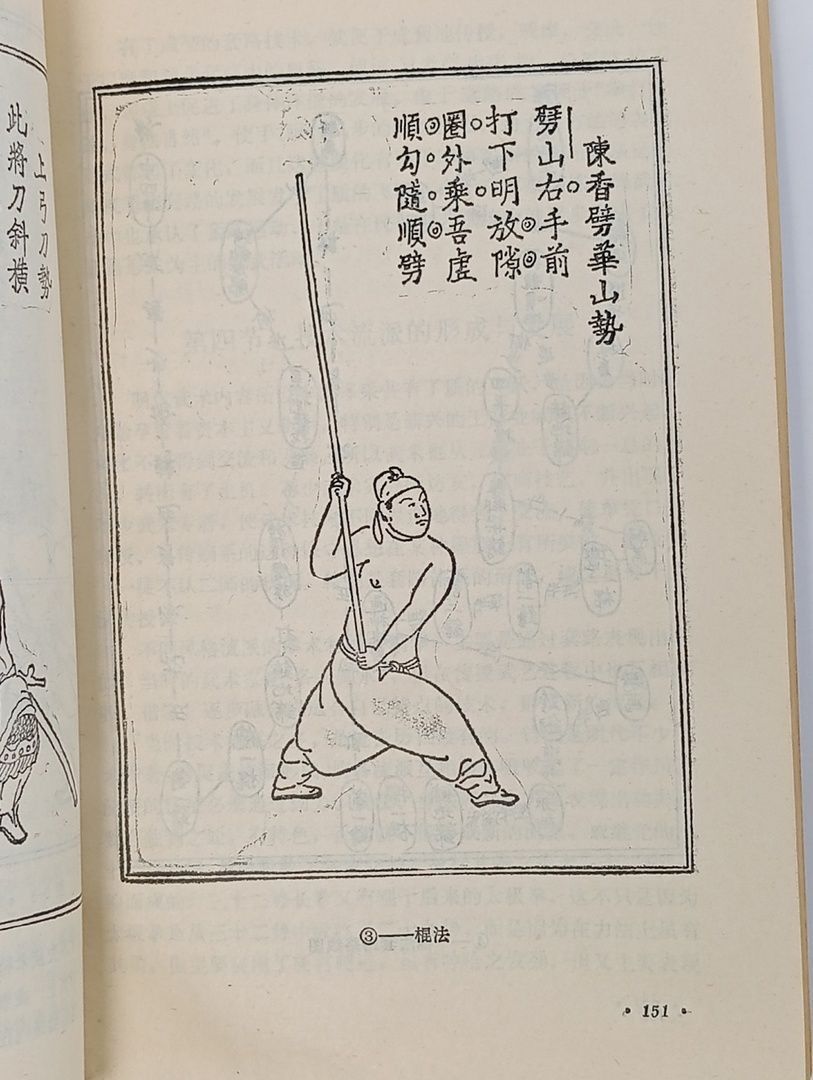 上弓刀勢
此將刀斜横
陳香劈華山勢
劈山右手前
打下明放隙
圈外乘吾虛
順勾隨順劈
③——棍法
· 151 ·